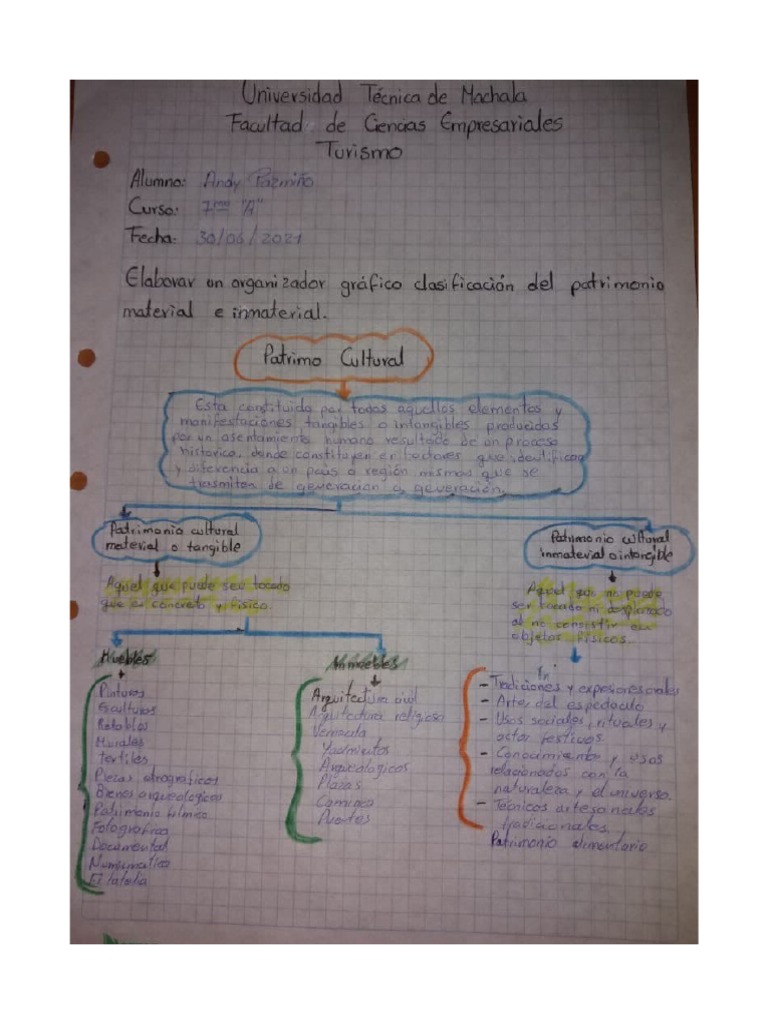 Universidad Técnica de Machala
Facultad de Ciencias Empresariales
Turismo
Alumno: Andy Pazmiño
Curso: 7mo "A"
Fecha: 30/06/2021
Elaborar un organizador gráfico clasificación del patrimonio
material e inmaterial.
Patrimo Cultural
Esta constituida por todos aquellos elementos y
manifestaciones tangibles o intangibles producidas
por un asentamiento humano resultado de un proceso
historico, donde constituyen en factores que identifican
y diferencia a un país o región mismos que se
trasmiten de generación a generación.
Patrimonio cultural
material o tangible
Aquel que puede ser tocado
que es concreto y fisico.
Muebles
Pinturas
Esculturas
Retablos
Murales
Textiles
Piezas etnograficos
Bienes arqueologicos
Patrimonio filmico
Fotografica
Documental
Numismatico
Filatelia
Inmuebles
Arquitectura civil
Arquitectura religioso
Vernacula
Yacimientos
Arqueologicos
Plazas
Caminos
Puentes
Patrimonio cultural
inmaterial o intangible
Aquel que no puede
ser tocado ni desplazado
al no consistir en
objetos físicos.
- Tradiciones y expresiones orales
- Artes del espectaculo
- Usos sociales, rituales y
actos festivos.
- Conocimiento y usos
relacionados con la
naturaleza y el universo.
- Tecnicos artesanales
tradicionales.
Patrimonio alimentario